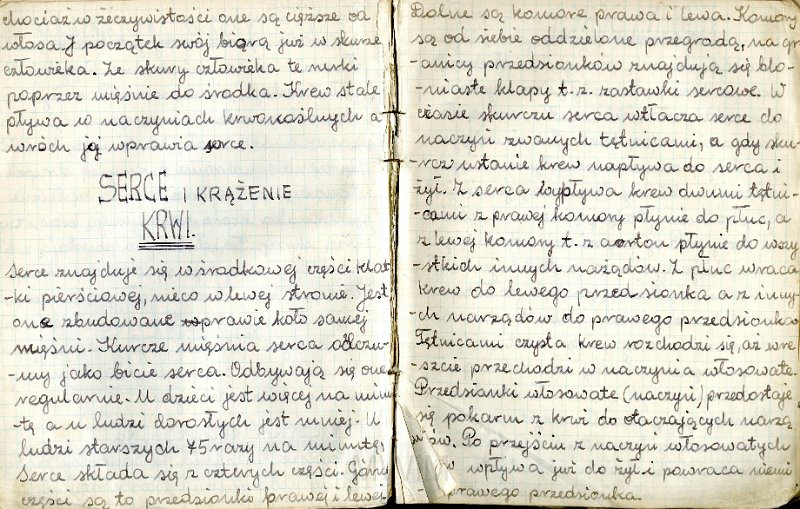 chociaż w rzeczywistości one są cięższe od
włosa. I początek swój biorą już w skurze
człowieka. Ze skury człowieka te nerki
poprzez mięśnie do środka. Krew stale
pływa w naczyniach krwonośnych a
w ruch ją wprawia serce.
SERCE I KRĄŻENIE
KRWI.
Serce znajduje się w środkowej części klat
-ki pierściowej, nieco w lewej stronie. Jest
one zbudowane wprawie koło samej
mięśni. Kurcze mięśnia serca odczu-
-my jako bicie serca. Odbywają się one
regularnie. U dzieci jest więcej na minu
-tę a u ludzi dorosłych jest mniej. U
ludzi starszych 75 razy na minutę,
Serce składa się z czterych części. Górne
części są to przedsionki prawej i lewej
Dolne są komore prawa i lewa. Komory
są od siebie oddzielone przegrodą, na gr
-anicy przedsionków znajdują się bło-
-niaste klapy t.z. zastawki sercowe. W
czasie skurczu serca wtłacza serce do
naczyń zwanych tętnicami, a gdy sku-
-rcz ustanie krew napływa do serca i
żył. Z serca wypływa krew dwumi tętni-
-cami z prawej komory płynie do płuc, a
z lewej komory t.z aorton płynie do wszy
-stkich innych narządów. Z płuc wraca
krew do lewego przedsionka a z inny-
-ch narządów do prawego przedsionka
Tętnicami czysta krew rozchodzi się, aż wre
-szcie przechodzi w naczynia włosowate.
Przedsionki włosowate (naczyń) przedostaje
się pokarm z krwi do otaczających narzą
-dów. Po przejściu z naczyń włosowatych
wpływa już do żył i powraca niemi
prawego przedsionka.